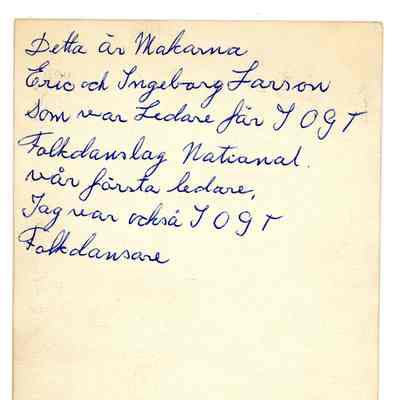 Detta är Makarna
Eric och Ingeborg Larson
Som var Ledare för I O G T
Folkdanslag National.
vår första ledare,
Jag var också I O G T
Folkdansare